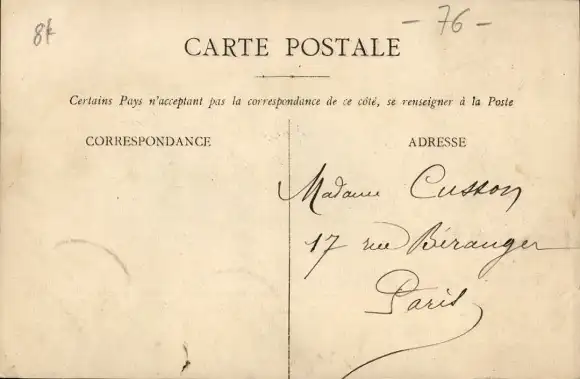 8f
- 76 -
CARTE POSTALE
Certains Pays n'acceptant pas la correspondance de ce côté, se renseigner à la Poste
CORRESPONDANCE
ADRESSE
Madame Cusson
17 rue Béranger
Paris